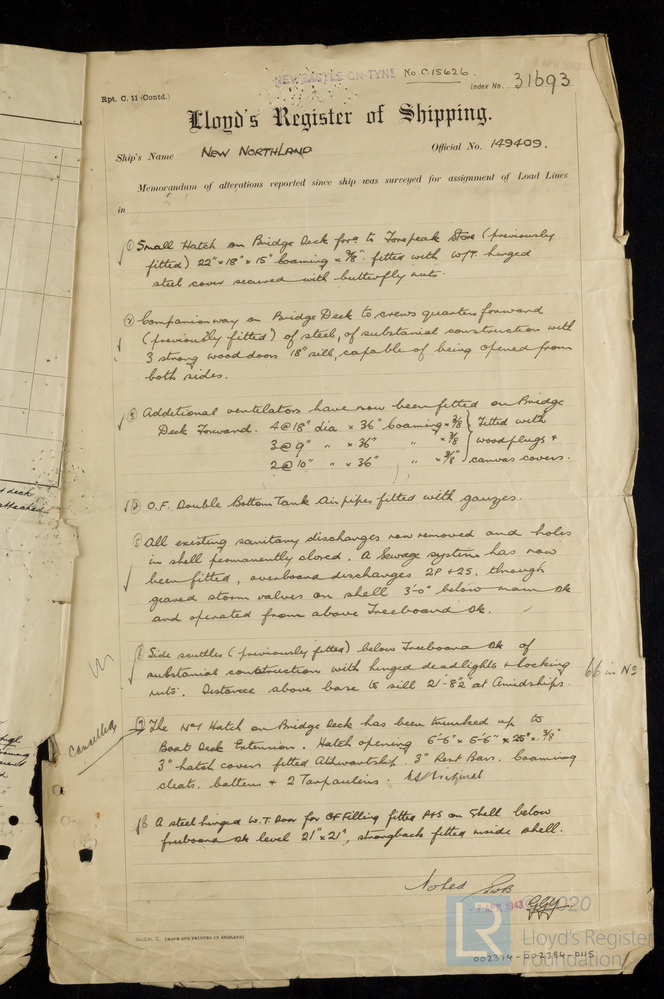 NEWCASTLE-ON-TYNE No. C.15626.
Index No. 31693
Rpt. C. 11 (Contd.)
Lloyd's Register of Shipping.
Ship's Name NEW NORTHLAND Official No. 149409.
Memorandum of alterations reported since ship was surveyed for assignment of Load Lines
in
① Small Hatch on Bridge Deck ford to Forepeak Store (previously
fitted) 22" x 18" x 15" Coaming x 3/8". fitted with W/T. hinged
steel cover secured with butterfly nuts.
② Companionway on Bridge Deck to crews quarters forward
(previously fitted) of steel, of substanial construction with
3 strong wood doors 18" sill, capable of being opened from
both sides.
③ Additional ventilators have now been fitted on Bridge
Deck Forward. 4 @ 18" dia x 36" Coaming x 3/8 } Fitted with
3 @ 9" " x 36" " x 3/8 } wood plugs +
2 @ 10" " x 36" " x 3/8" } canvas covers.
O.F. Double Bottom Tank Air pipes fitted with gauzes.
⑤ All existing sanitary discharges now removed and holes
in shell permanently closed. A Sewage system has now
been fitted, overboard discharges 2P + 2S. through
geared storm valves on shell 3'-0" below main Dk
and operated from above Freeboard Dk.
⑥ Side scuttles (previously fitted) below Freeboard Dk of
substanial construction with hinged deadlights + locking
nuts. Distance above base to sill 21'-8½" at Amidships.
66 in No
⑦ The No 1 Hatch on Bridge Deck has been trunked up to
Boat Deck Extension. Hatch opening 6'-6" x 6'-6" x 25" x 3/8"
3" hatch covers fitted Athwartship. 3" Rest Bars. Coaming
cleats, battens + 2 Tarpaulins.
Cancelled
8 A steel hinged W.T. Door for OF Filling fitted P+S on Shell below
freeboard Dk level 21" x 21", strongbacks fitted inside shell.
Noted
-7 APR 1943
© 2020
(MADE AND PRINTED IN ENGLAND)
LR
Lloyd's Register
Foundation
002374-002384-0115